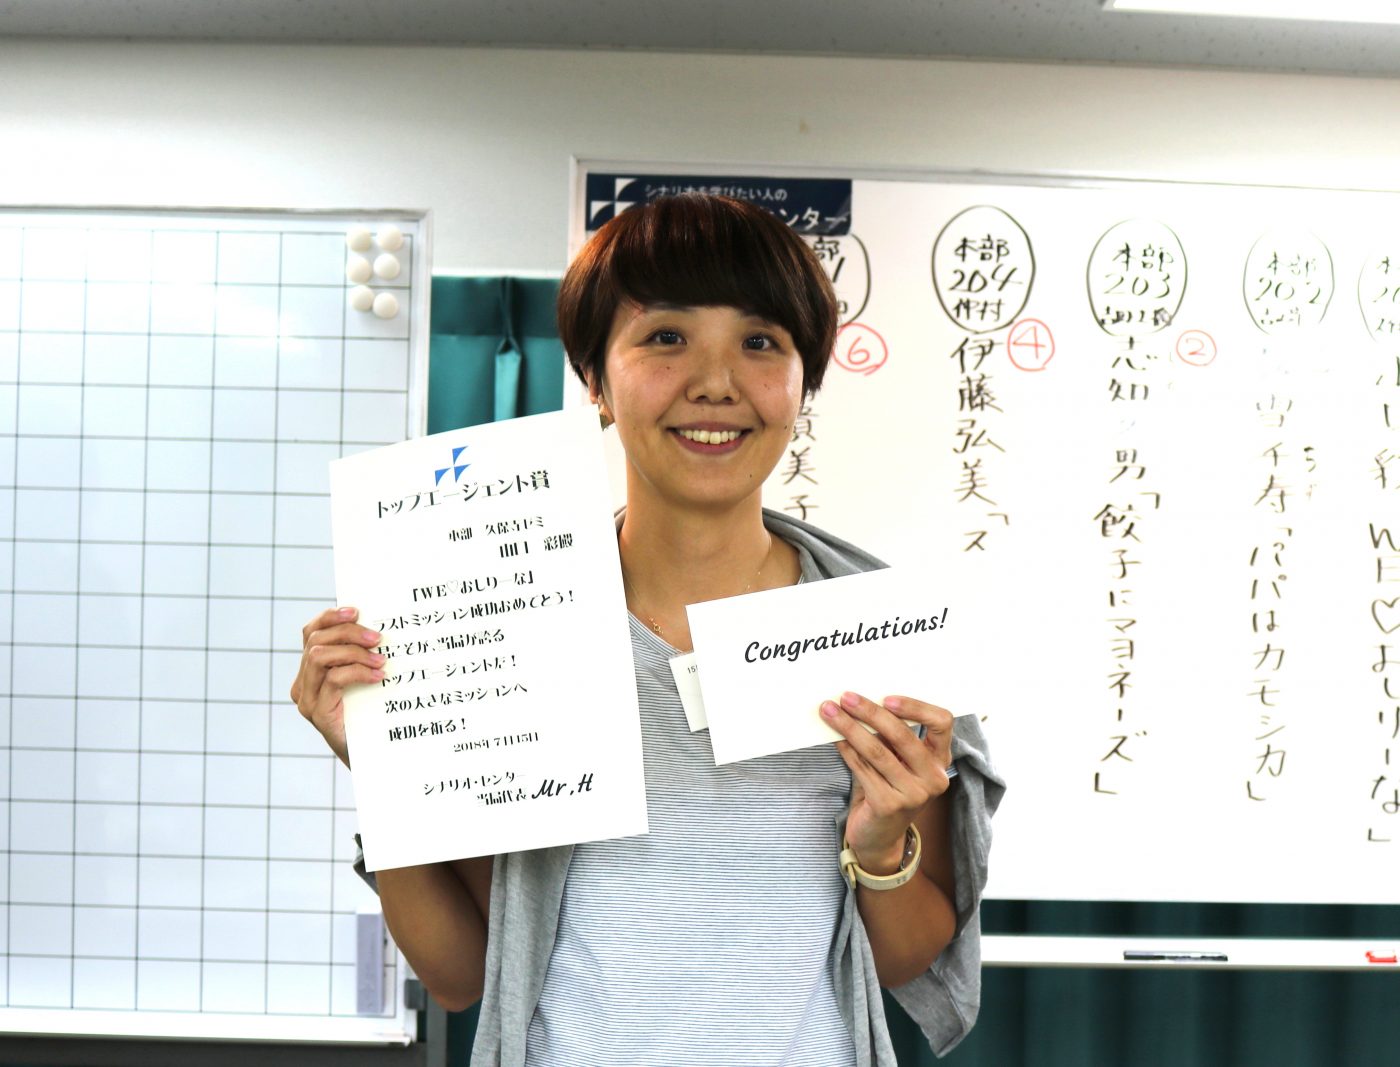 トップエージェント賞
本部 久保寺ゼミ
山口 彩殿
「WE♡おしりーな」
ラストミッション成功おめでとう！
君こそが、当局が誇る
トップエージェントだ！
次の大きなミッションへ
成功を祈る！
2018年7月15日
シナリオ・センター
当局代表 Mr.H
Congratulations!
151
シナリオを学びたい人の
ンター
部
⑥
貴美子
本部
204
仲村
④
伊藤弘美「ス
本部
203
②
志知
男「餃子にマヨネーズ」
本部
202
雪千寿「パパはカモシカ」
彩 WE♡おしりーな」